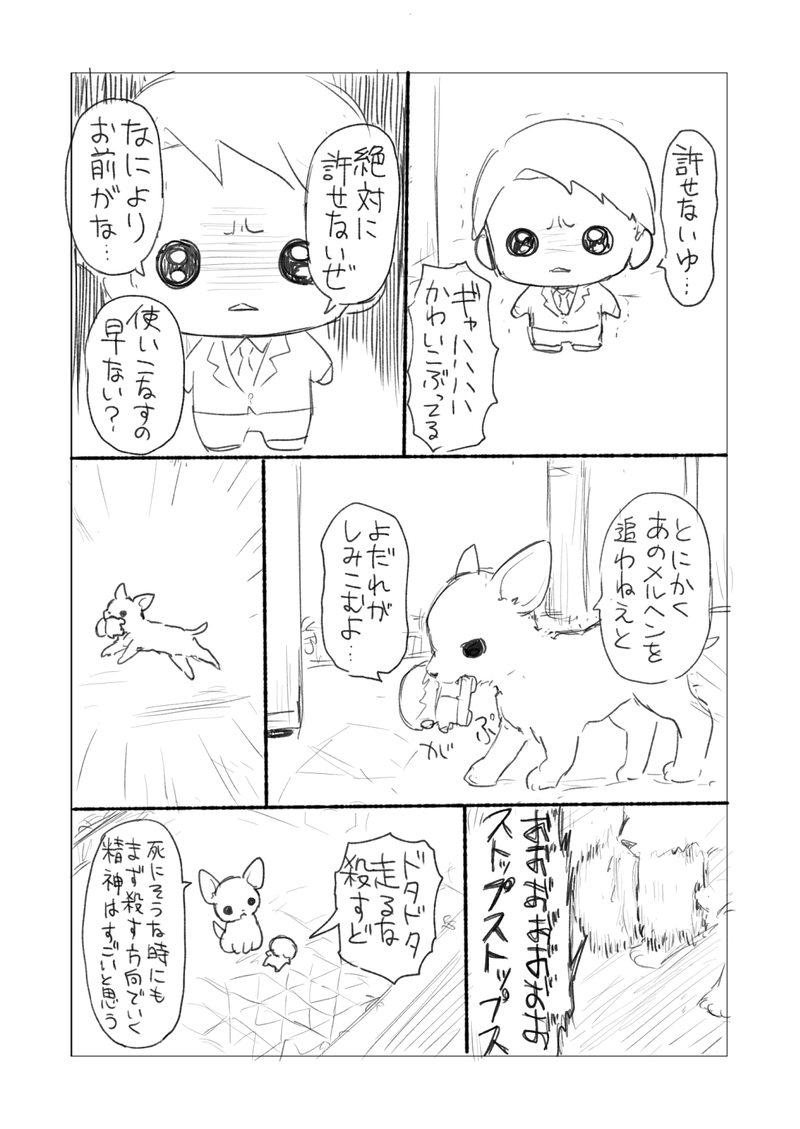 許せないゆ…
ギャハハハハ
かわいこぶってる
絶対に
許せないぜ
なにより
お前がな…
使いこなすの
早ない?
とにかく
あのメルヘンを
追わねえと
よだれが
しみこむよ…
がぷ
おおおおおおおお
ストップストップス
ドタドタ
走るな
殺すど
死にそうな時にも
まず殺す方向でいく
精神はすごいと思う